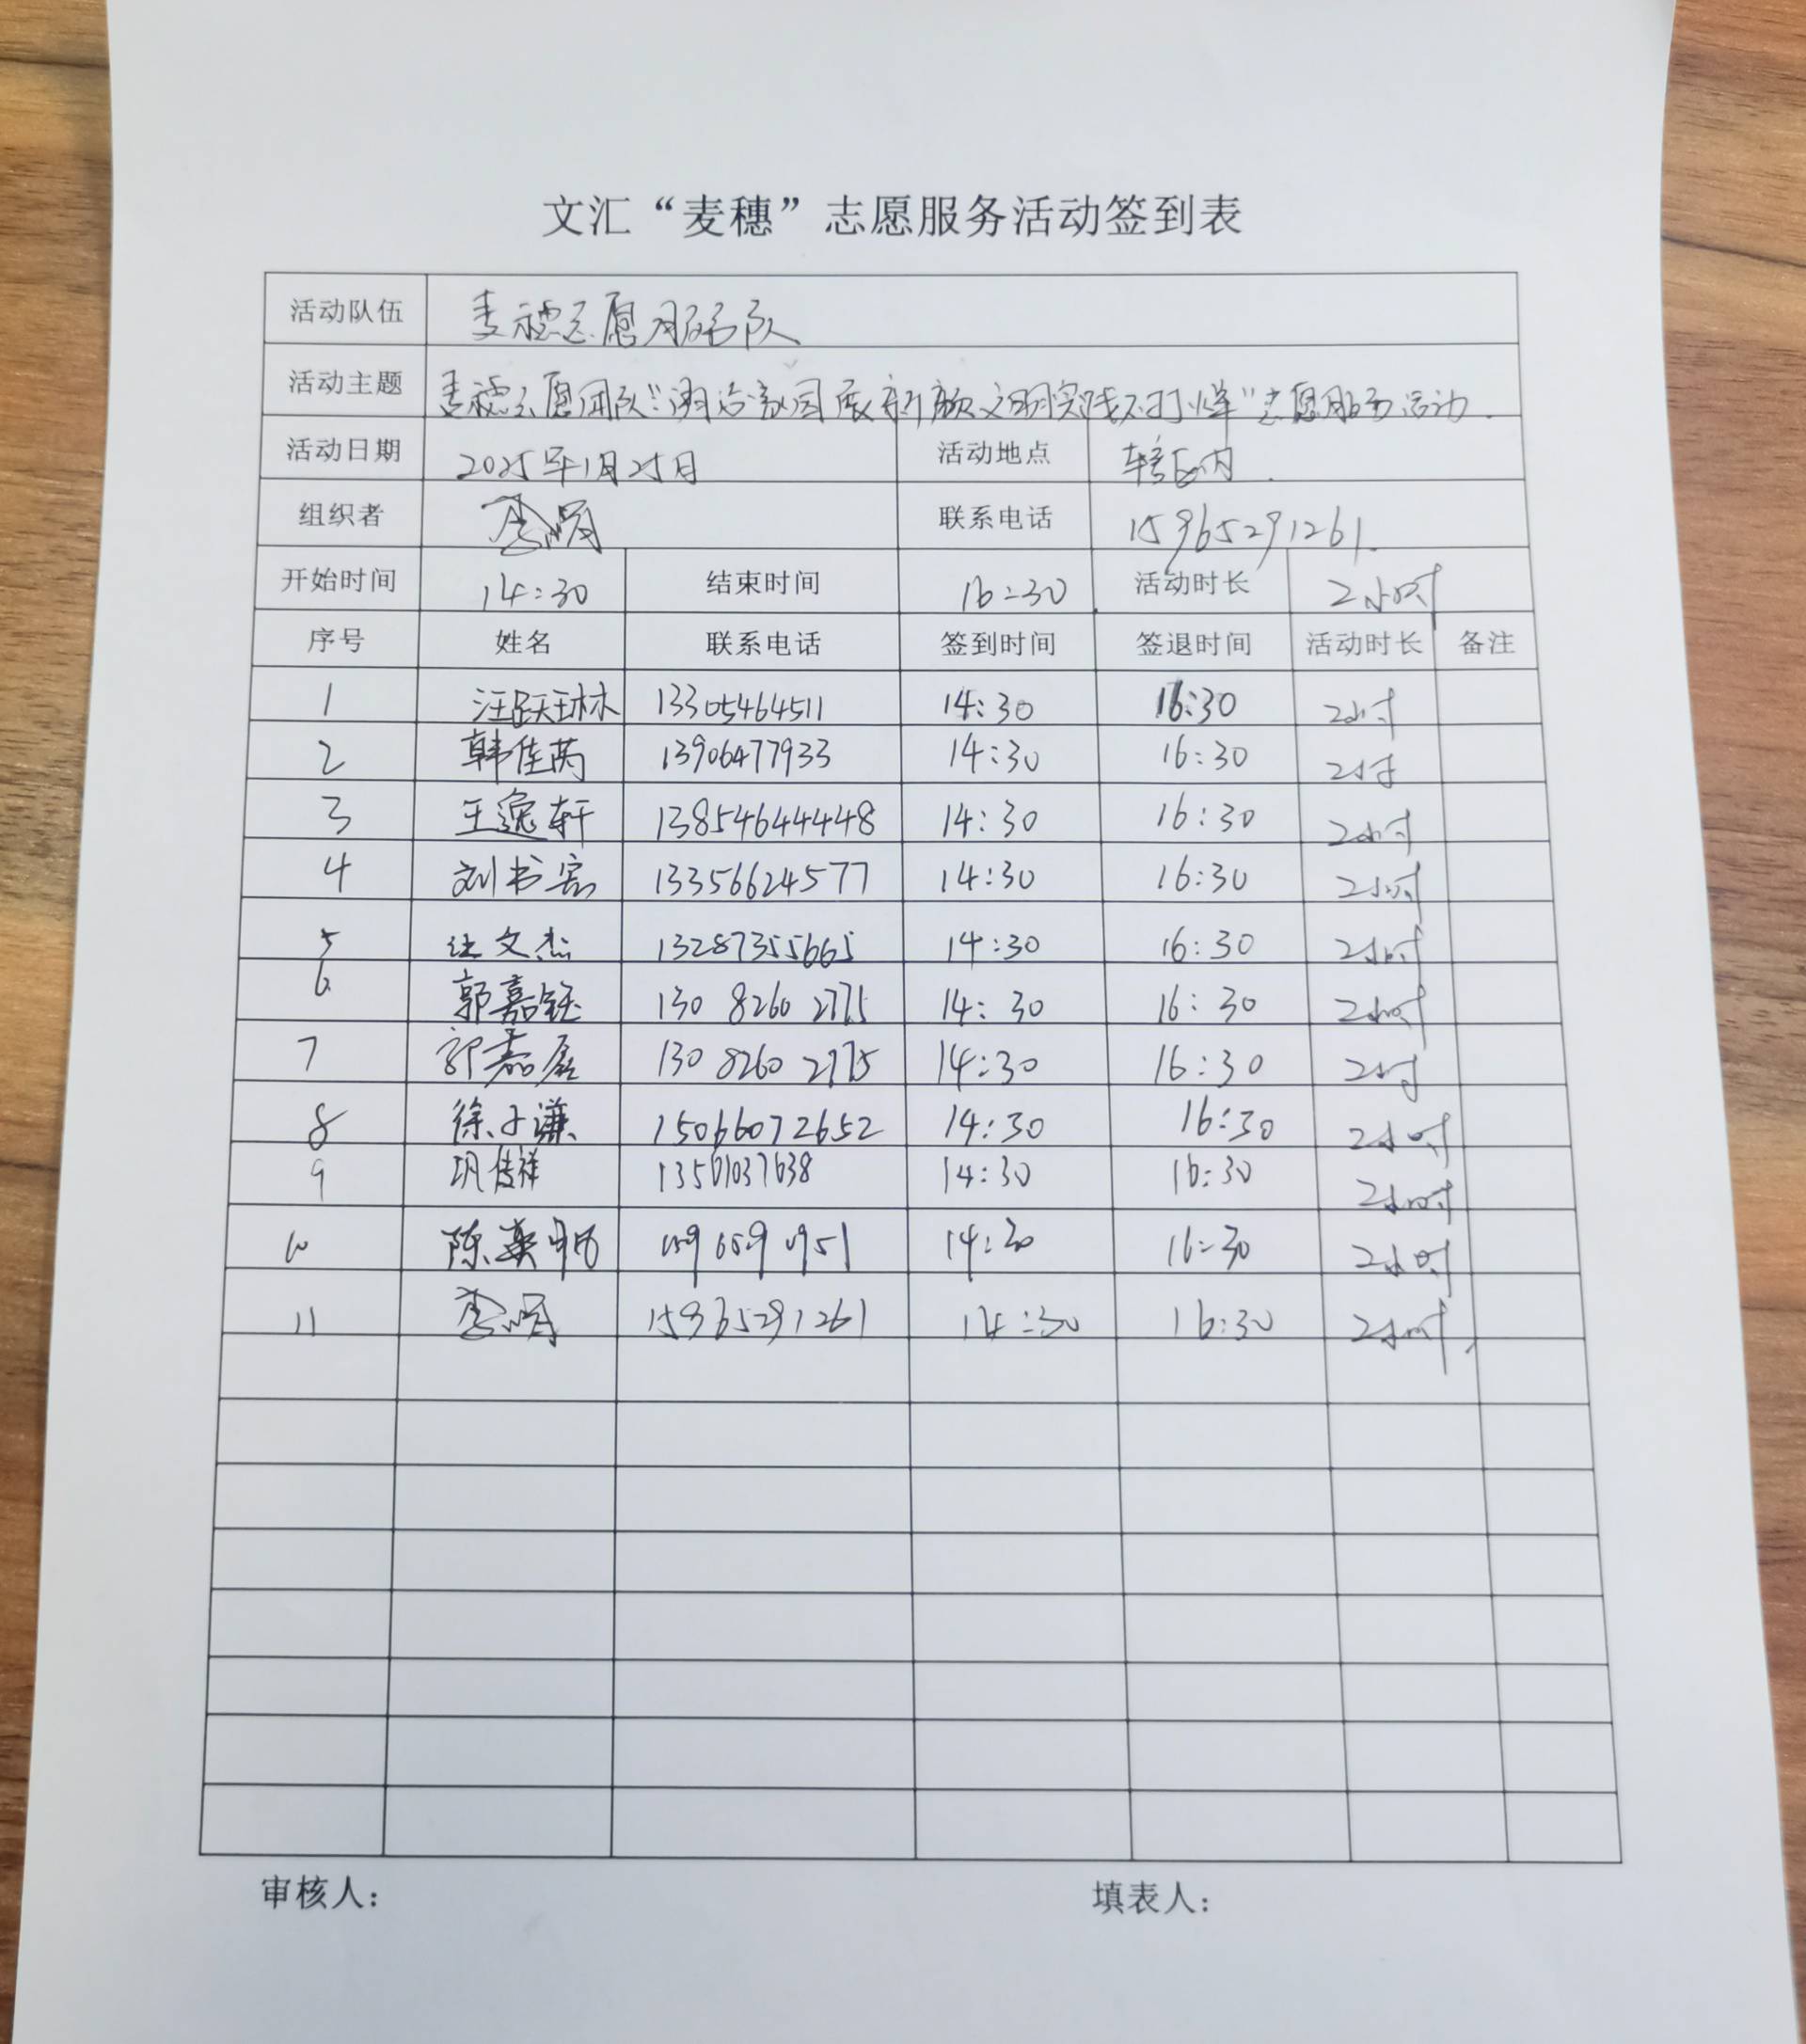 文汇“麦穗”志愿服务活动签到表
活动队伍 麦穗志愿服务队
活动主题 麦穗志愿团队“清洁家园展新颜文明实践不打烊”志愿服务活动.
活动日期 2025年1月25日 活动地点 辖区内.
组织者 李娟 联系电话 15965291261.
开始时间 14:30 结束时间 16:30 活动时长 2小时
序号 姓名 联系电话 签到时间 签退时间 活动时长 备注
1 汪跃琳 13305464511 14:30 16:30 2小时
2 韩佳芮 13906477933 14:30 16:30 2小时
3 王逸轩 13854644448 14:30 16:30 2小时
4 刘书宏 13356624577 14:30 16:30 2小时
5 文杰 13287355665 14:30 16:30 2小时
6 郭嘉钰 130 8260 2775 14:30 16:30 2小时
7 郭嘉 130 8260 2775 14:30 16:30 2小时
8 徐子谦 15066072652 14:30 16:30 2小时
9 巩俊祥 13561037638 14:30 16:30 2小时
10 陈 14:30 16:30 2小时
11 李娟 15965291261 14:30 16:30 2小时
审核人： 填表人：